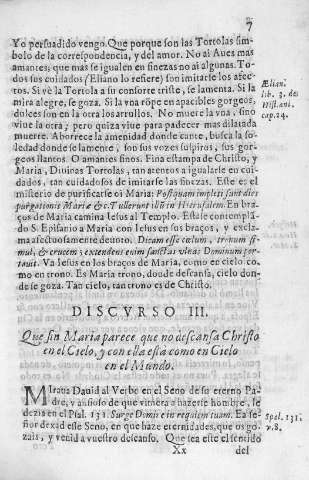 7
Yo persuadido vengo. Que porque son las Tortolas sim-
bolo de la correspondencia, y del amor. No ai Aues mas
amantes; que mas se igualen en finezas no ai algunas. To-
dos sus cuidados (Eliano lo refiere) son imitarse los afec-
tos. Si vè la Tortola a su consorte triste, se lamenta. Si la
mira alegre, se goza. Si la vna rõpe en apacibles gorgeos,
dulces son en la otra los arrullos. No muere la vna, sino
viue la otra; pero quiza viue para padecer mas dilatada
muerte. Aborrece la amenidad donde cante, busca la so-
ledad donde se lamente, son sus vozes suspiros, sus gor-
geos llantos. O amantes finos. Fina estampa de Christo, y
Maria, Diuinas Tortolas, tan atentos a igualarse en cui-
dados, tan cuidadosos de imitarse las finezas. Este es el
misterio de purificarse oi Maria: Postquam impleti sunt dies
purgationis Mariæ &c. Tullerunt illum in Hierusalem. En bra-
ços de Maria camina Iesus al Templo. Estase contemplã-
do S. Epifanio a Maria con Iesus en sus braços, y excla-
ma afectuosamente deuoto. Dicam esse cœlum, tronum si-
mul, & crucem; extendens enim sanctas vlnas Dominum por-
tauit. Va Iesus en los braços de Maria, como en cielo, co-
mo en trono. Es Maria trono, donde descansa, cielo don-
de se goza. Tan cielo, tan trono es de Christo.
Ælian.
lib. 3. de
Hist. ani.
cap. 24.
DISCVRSO III.
Que sin Maria parece que no descansa Christo
en el Cielo, y con ella està como en Cielo
en el Mundo.
MIraua Dauid al Verbo en el Seno de su eterno Pa-
dre, y ansioso de que viniera a hazerse hombre, le
dezia en el Psal. 131. Surge Domine in requiem tuam. Ea se-
ñor dexad esse Seno, en que haze eternidades, que os go-
zais, y venid a vuestro descanso. Que sea este el sentido
Spal. 131.
v. 8.
Xx
del